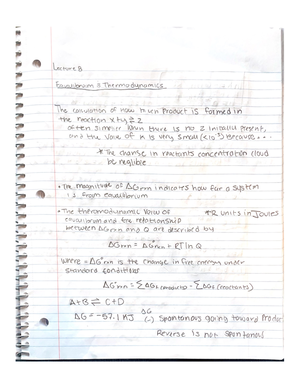 Lecture B
Equilibrium & Thermodynamics
The calculation of how much product is formed in
the reaction x+y⇌2
often simpler when there is no 2 initially present,
and the value of K is very small (<10⁻⁵) because...
* The change in reactants concentration cloud
be neglible
• The magnitude of ΔGrxn indicates how far a system
is from equilibrium
• The thermodynamic view of
equilibrium and the relationship
between ΔGrxn and Q are described by
*R units in Joules
ΔGrxn = ΔG°rxn + RT ln Q
Where = ΔG°rxn is the change in free energy under
standard conditions
ΔG°rxn = ΣΔGf (products) - ΣΔGf (reactants)
A+B ⇌ C+D
ΔG = -57.1 KJ ΔG (-) Spontanous going toward Product
Reverse is not spontanous